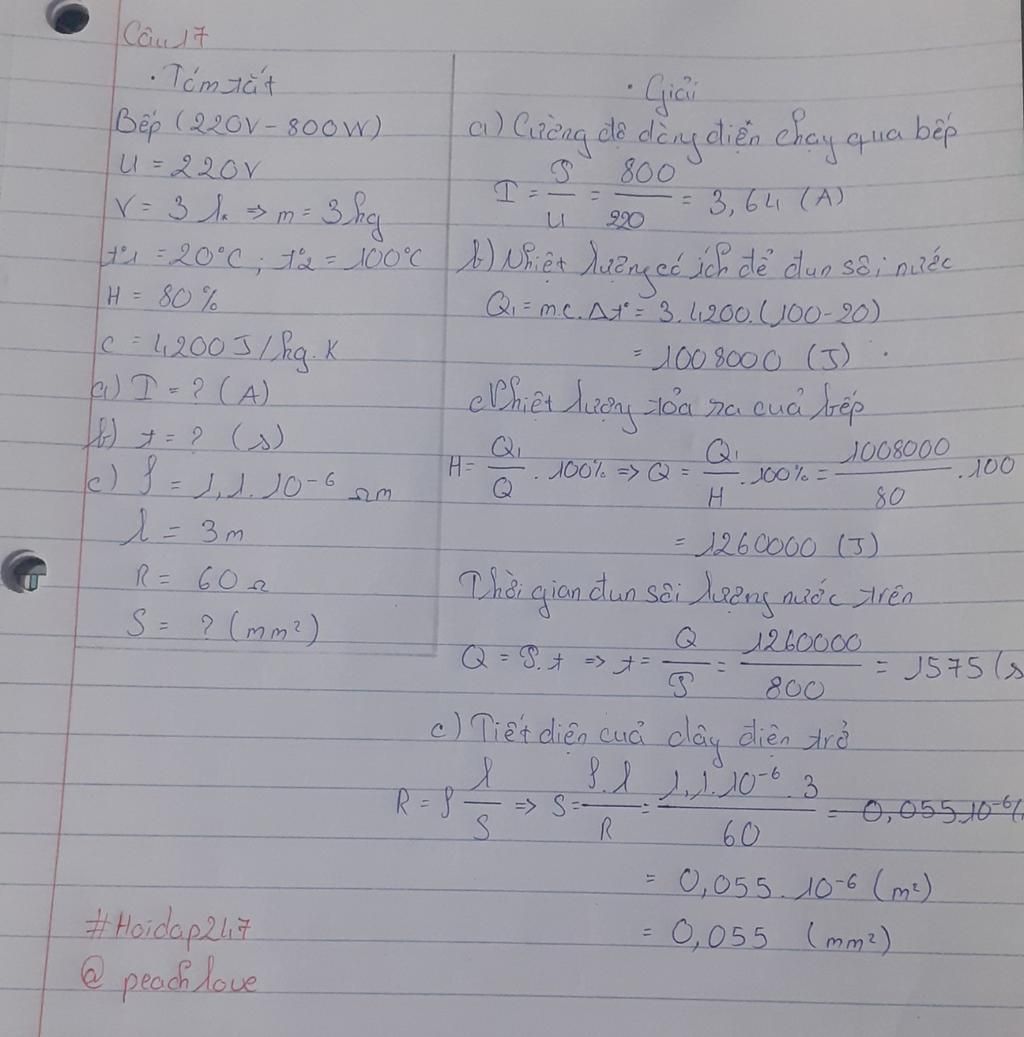 Câu 17
• Tóm tắt
Bếp (220V - 800W)
U = 220V
V = 3 l. => m = 3kg
t°1 = 20°C ; t°2 = 100°C
H = 80%
c = 4200J/kg.K
a) I = ? (A)
b) t = ? (s)
c) ρ = 1,1.10⁻⁶ Ωm
l = 3m
R = 60Ω
S = ? (mm²)
• Giải
a) Cường độ dòng điện chạy qua bếp
I = P/U = 800/220 = 3,64 (A)
b) Nhiệt lượng có ích để đun sôi nước
Q₁ = m.c.Δt° = 3.4200.(100-20)
= 1008000 (J)
Nhiệt lượng tỏa ra cuả bếp
H = Q₁/Q . 100% => Q = Q₁/H . 100% = 1008000/80 .100
= 1260000 (J)
Thời gian đun sôi lượng nước trên
Q = P.t => t = Q/P = 1260000/800 = 1575 (s
c) Tiết diện cuả dây điện trở
R = ρ l/S => S = ρ.l/R = 1,1.10⁻⁶.3/60 = 0,055.10⁻⁶(
= 0,055.10⁻⁶ (m²)
= 0,055 (mm²)
#Hoidap247
@ peachlove